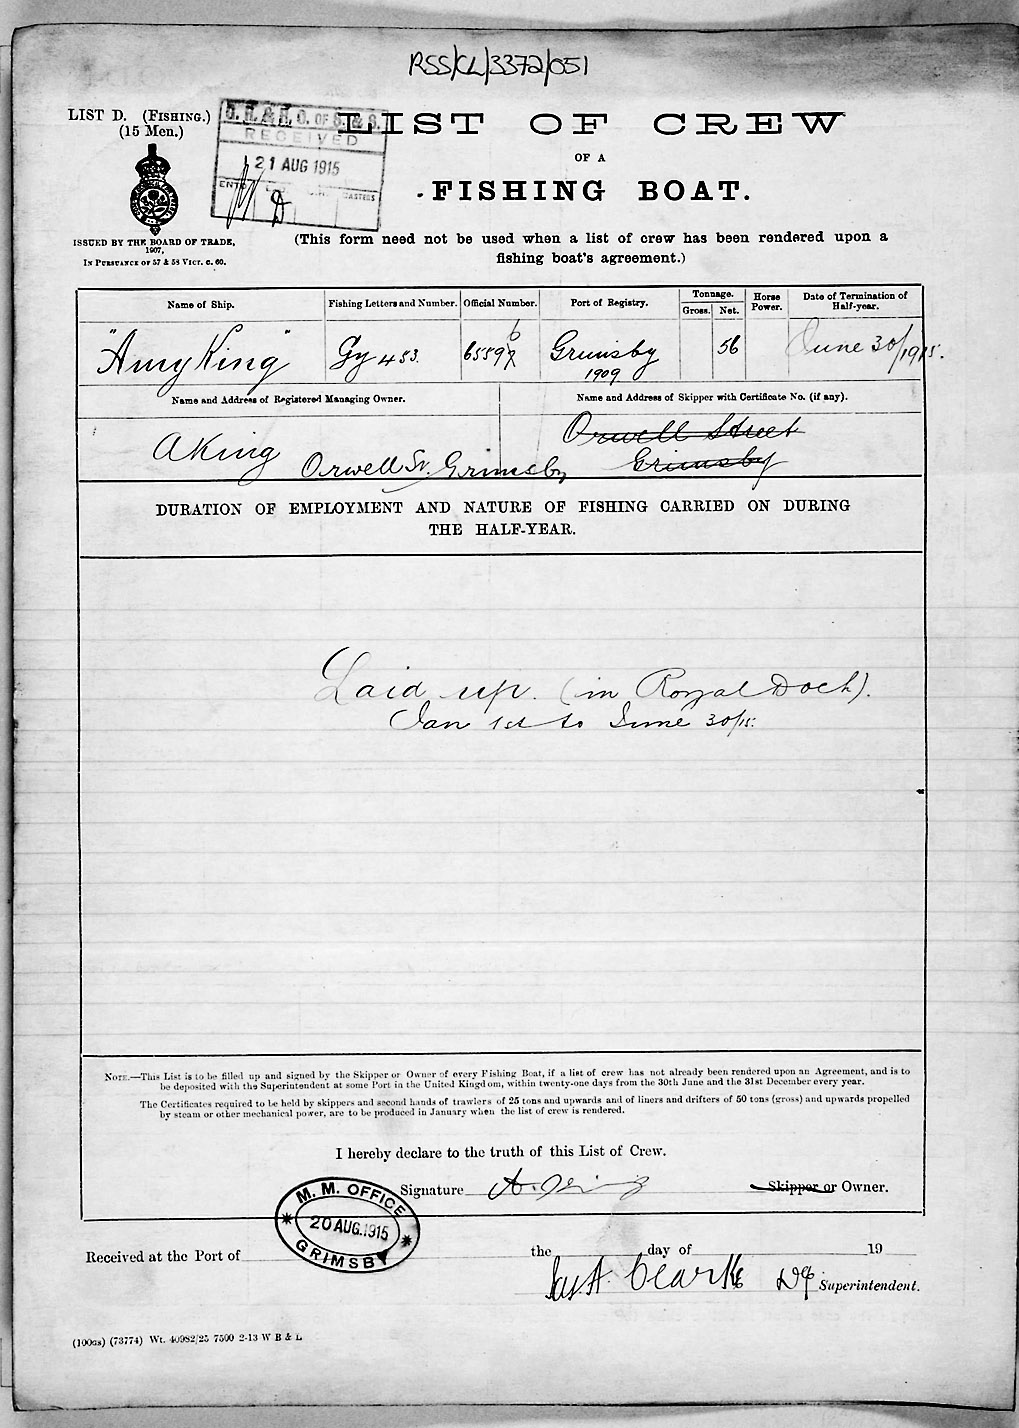 RSS/CL/3372/051
LIST D. (FISHING.)
(15 Men.)
G. R. & R. O. OF S. & S.
RECEIVED
21 AUG 1915
D
LIST OF CREW
OF A
FISHING BOAT.
ISSUED BY THE BOARD OF TRADE,
1907,
IN PURSUANCE OF 57 & 58 VICT. C. 60.
(This form need not be used when a list of crew has been rendered upon a
fishing boat's agreement.)
Name of Ship. Fishing Letters and Number. Official Number. Port of Registry. Tonnage. Gross. Net. Horse Power. Date of Termination of Half-year.
"Amy King" Gy 453. 65596 Grimsby 1909 56 June 30/1915.
Name and Address of Registered Managing Owner. Name and Address of Skipper with Certificate No. (if any).
Orwell Street
A King Orwell St. Grimsby Grimsby
DURATION OF EMPLOYMENT AND NATURE OF FISHING CARRIED ON DURING
THE HALF-YEAR.
Laid up. (in Royal Dock).
Jan 1st to June 30/15.
NOTE.—This List is to be filled up and signed by the Skipper or Owner of every Fishing Boat, if a list of crew has not already been rendered upon an Agreement, and is to
be deposited with the Superintendent at some Port in the United Kingdom, within twenty-one days from the 30th June and the 31st December every year.
The Certificates required to be held by skippers and second hands of trawlers of 25 tons and upwards and of liners and drifters of 50 tons (gross) and upwards propelled
by steam or other mechanical power, are to be produced in January when the list of crew is rendered.
I hereby declare to the truth of this List of Crew.
Signature A. King Skipper or Owner.
M. M. OFFICE
20 AUG. 1915
GRIMSBY
Received at the Port of the day of 19
Clarke Dy Superintendent.
(100GS) (73774) Wt. 40982/25 7500 2-13 W B & L